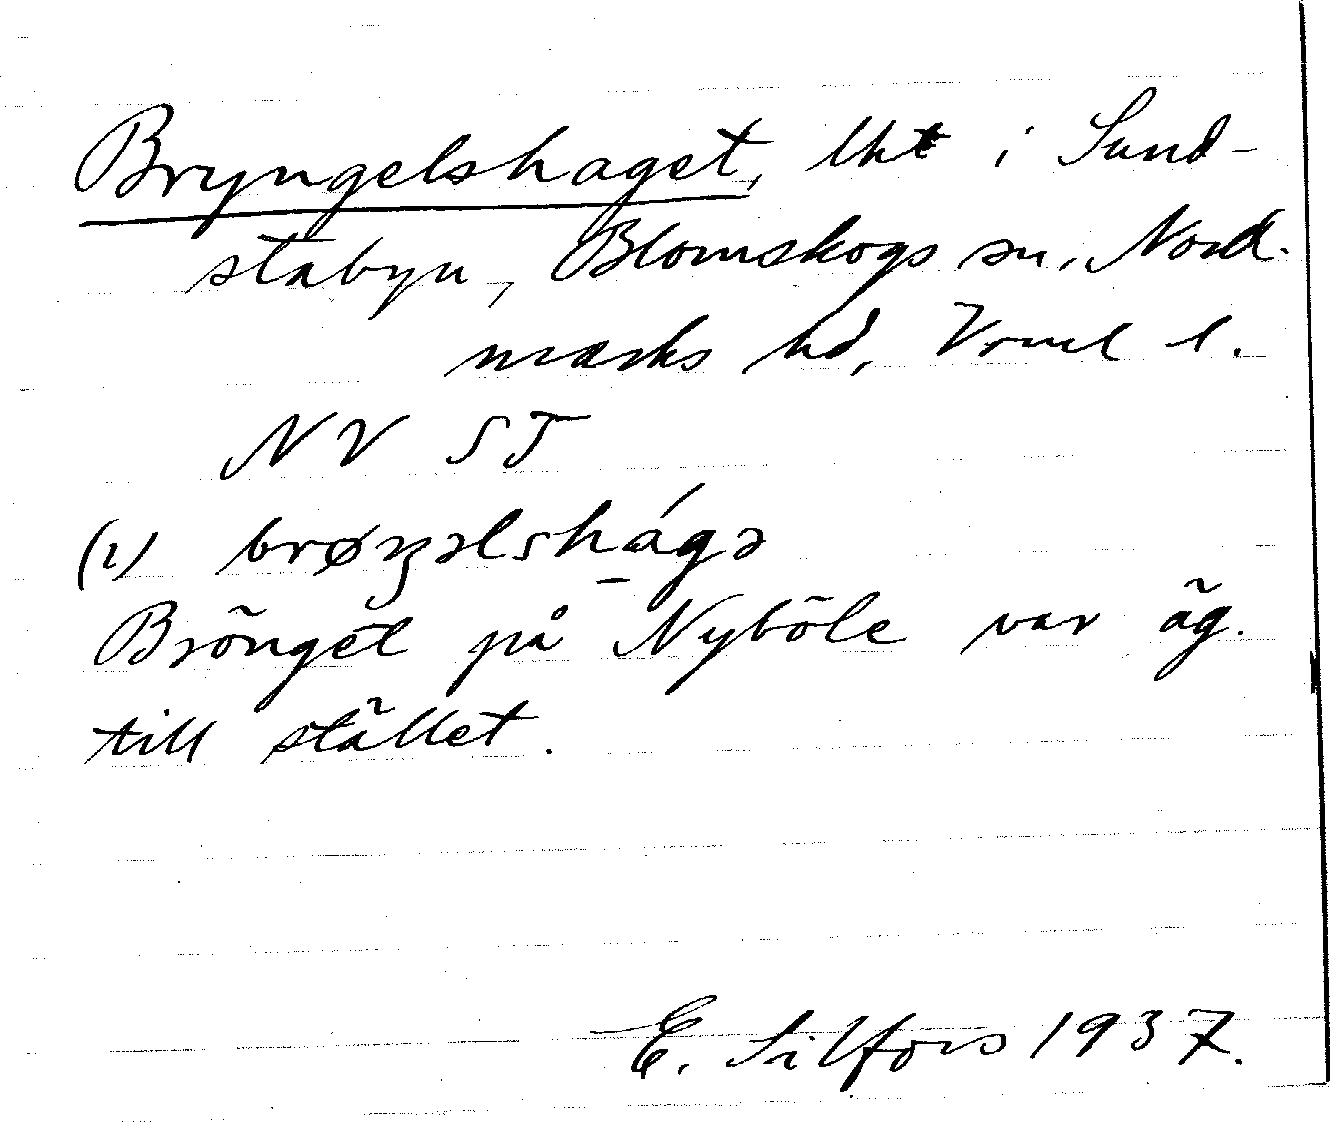 Bryngelshaget, lht i Sund-
stabyn, Blomskogs sn, Nord-
marks hd, Vrml l.
NV ST
(1) brøŋəlshágə
Brõngel på Nybõle var ãg.
till stãllet.
E. Silfors 1937.